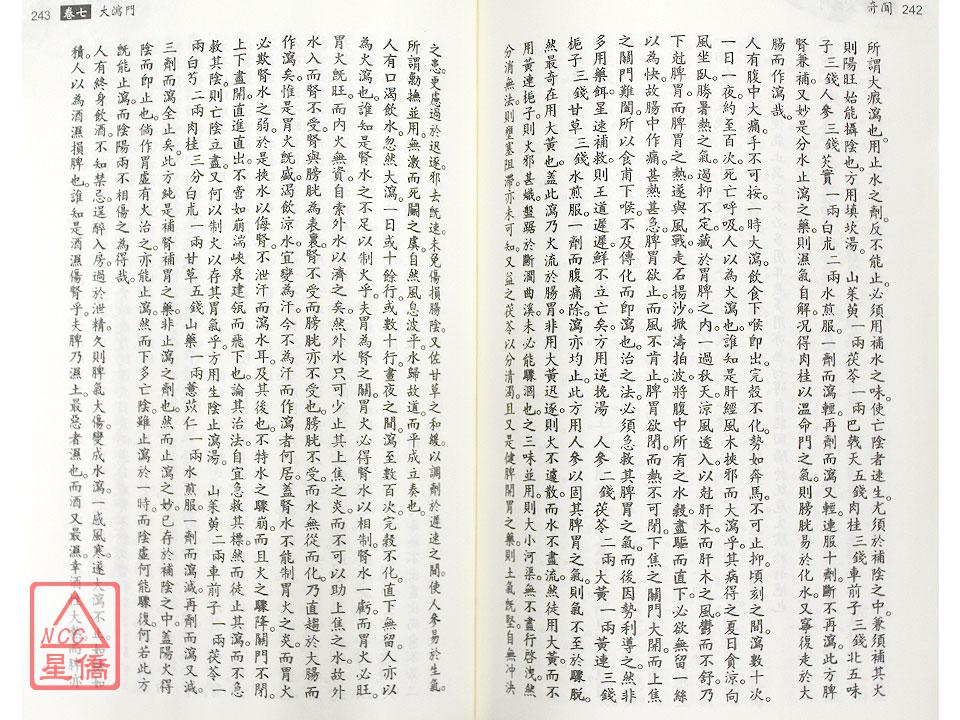 奇聞 242
所謂大瘕瀉也。用止水之劑。反不能止。必須用補水之味。使亡陰者速生。尤須於補陰之中。兼須補其火
則陽旺始能攝陰也。方用填坎湯　山茱萸一兩茯苓一兩巴戟天五錢肉桂三錢車前子三錢北五味
子三錢人參三錢芡實一兩白朮二兩水煎服。一劑而瀉輕。再劑而瀉又輕。連服十劑。斷不再瀉。此方脾
腎兼補。又妙是分水止瀉之藥。則濕氣自解。況得肉桂以溫命門之氣。則膀胱易於化水。又寧復走於大
腸而作瀉哉。
人有腹中大痛。手不可按。一時大瀉。飲食下喉即出。完殼不化。勢如奔馬。不可止抑。頃刻之間。瀉數十次。
一日一夜約至百次。死亡呼吸。人以為火瀉也。誰知是肝經風木挾邪而大瀉乎。其病得之夏日貪涼。向
風坐臥。將暑熱之氣。遏抑不定。藏於胃脾之內。一過秋天。涼風透入。以尅肝木。而肝木之風。鬱而不舒。乃
下尅脾胃。而脾胃之熱。遂與風戰。走石揚沙。掀濤拍波。將腹中所有之水穀。盡驅而直下。必欲無留一絲
以為快。故腸中作痛。甚熱甚急。脾胃欲止。而風不肯止。脾胃欲閉。而熱不可閉。下焦之關門大開。而上焦
之關門難闔。所以食甫下喉。不及傳化而即瀉也。治之法。必須急救其脾胃之氣。而後因勢利導之。然非
多用藥餌。星速補救。則王道遲遲。鮮不立亡矣。方用逆挽湯　人參二錢茯苓二兩大黃一兩黃連三錢
梔子三錢甘草三錢水煎服。一劑而腹痛除瀉亦均止。此方用人參以固其脾胃之氣。則氣不至於驟脫。
然最奇在用大黃也。蓋此瀉乃火流於腸胃。非用大黃迅逐。則火不遽散。而水不盡流。然徒用大黃。而不
用黃連梔子。則火邪甚熾。盤踞於斷澗曲溪。未必能驟涸也。之三味並用。則大小河渠。無不盡行啓洩。然
分消無法。則壅塞阻滯。亦未可知。又益之茯苓以分清濁。且又是健脾開胃之藥。則土氣既堅。自無沖決
243 卷七 大瀉門
之患。更慮過於迅逐。邪去既速。未免傷損腸陰。又佐甘草之和緩。以調劑於遲速之間。使人參易於生氣。
所謂勦撫並用。無激而死鬭之虞。自然風息波平。水歸故道。而平成立奏也。
人有口渴飲水。忽然大瀉。一日或十餘行。或數十行。晝夜之間。瀉至數百次。完穀不化。直下無留。人亦以
為火瀉也。誰知是腎水之不足以制火乎。夫胃為腎之關。胃火必得腎水以相制。腎水一虧。而胃火必旺。
胃火既旺。而內火無資。自索外水以濟之矣。然外水只可少止其上焦之炎。而不可以助上焦之水。故外
水入而腎不受。腎與膀胱為表裏。腎不受而膀胱亦不受也。膀胱不受而水無從而化。乃直趨於大腸而
作瀉矣。惟是胃火既盛。渴飲涼水。宜變為汗。今不為汗而作瀉者何居。蓋腎水不能制胃火之炎。而胃火
必欺腎水之弱。於是挾水以侮腎。不泄汗而瀉水耳。及其後也。不特水之驟崩。而且火之驟降。關門不閉
上下盡開。直進直出。不啻如崩湍峽泉。建瓴而飛下也。論其治法。自宜急救其標。然而徒止其瀉而不急
救其陰。則亡陰立盡。又何以制火以存其胃氣乎。方用生陰止瀉湯　山茱萸二兩車前子一兩茯苓一
兩白芍二兩肉桂三分白朮一兩甘草五錢山藥一兩薏苡仁一兩水煎服。一劑而瀉減。再劑而瀉又減。
三劑而瀉全止矣。此方純是補腎補胃之藥。非止瀉之劑也。然而止瀉之妙。已存於補陰之中。蓋陽火得
陰而即止也。倘作胃虛有火治之。亦能止瀉。然而下多亡陰。雖止瀉於一時。而陰虛何能驟復。何若此方
既能止瀉。而陰陽兩不相傷之為得哉。
人有終身飲酒。不知禁忌。逞醉入房。過於泄精。久則脾氣大傷。變成水瀉。一感風寒。遂大瀉不
積。人以為酒濕損脾也。誰知是酒濕傷腎乎。夫脾乃濕土。最惡者濕也。而酒又最濕。幸酒
NCC
星僑